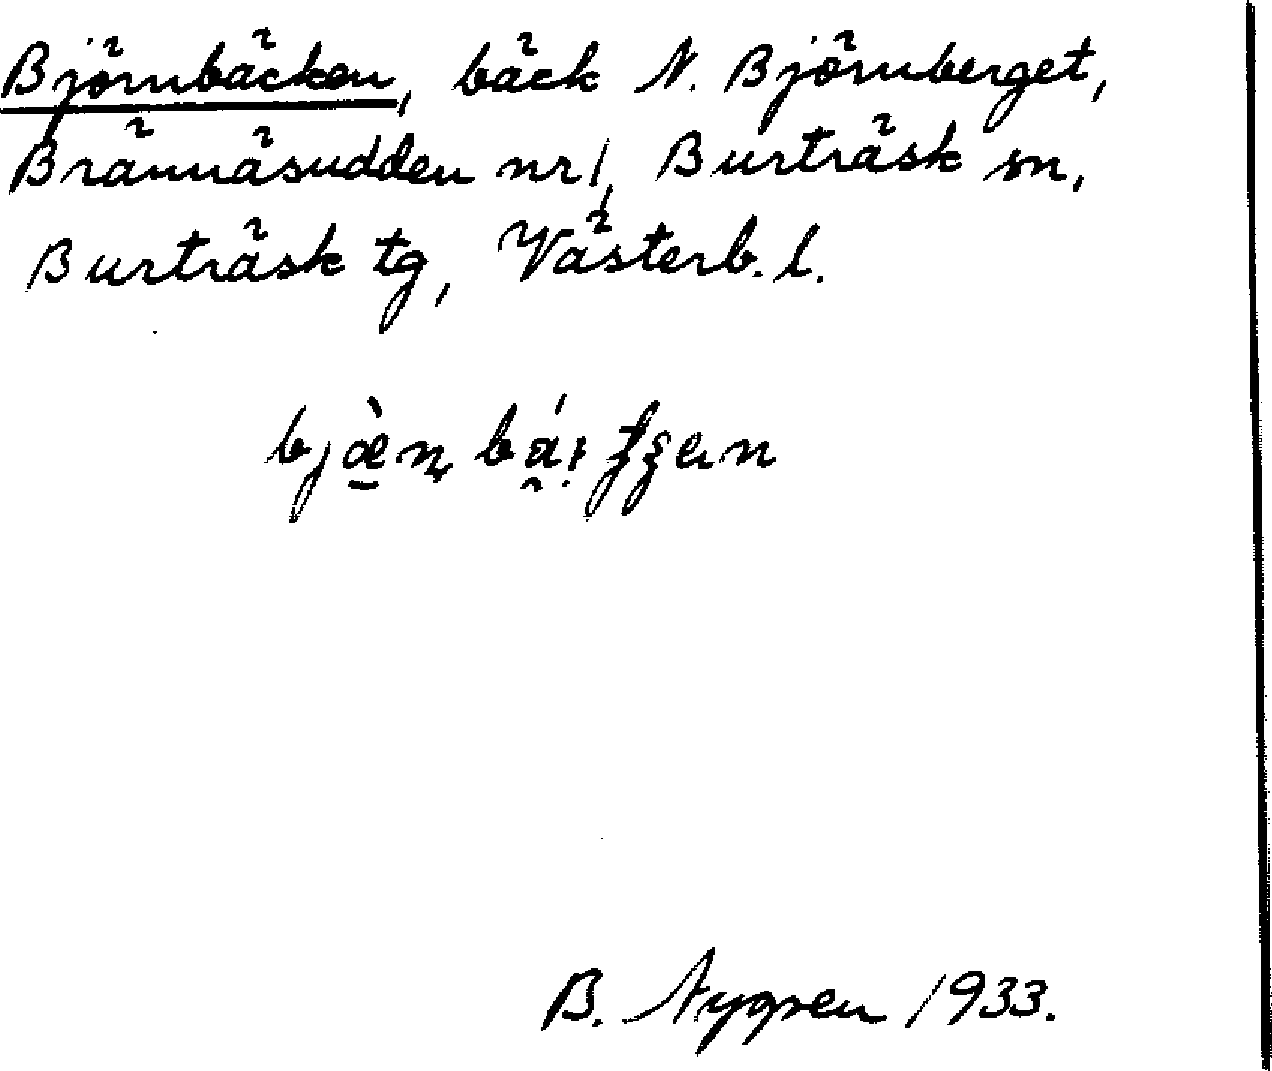 Björnbäcken, bäck N. Björnberget,
Brännäsudden nr 1, Burträsk sn,
Burträsk tg, Västerb. l.
B. Nygren 1933.